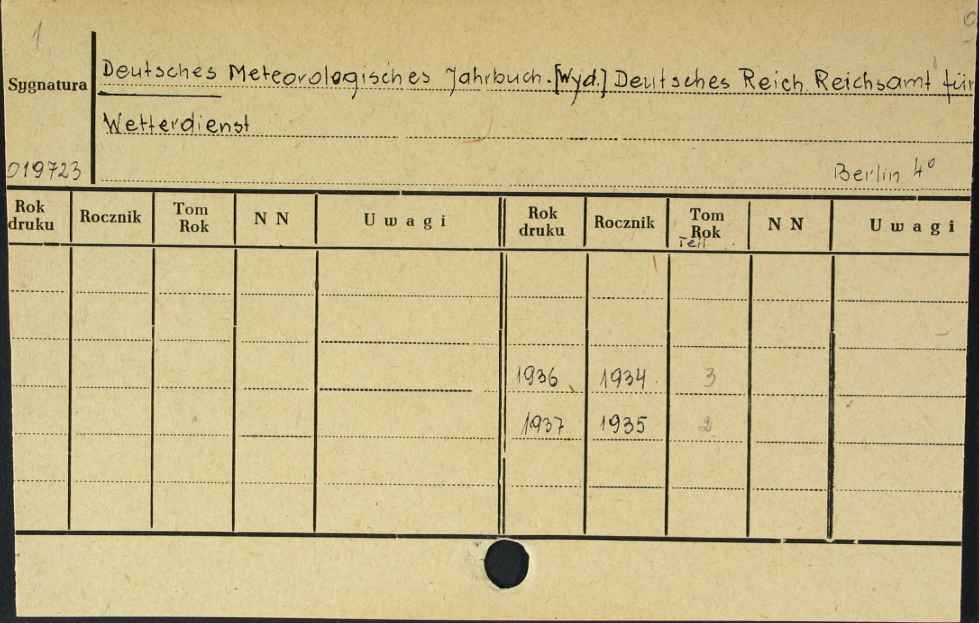 1
Sygnatura
Deutsches Meteorologisches Jahrbuch. [Wyd.] Deutsches Reich Reichsamt für
Wetterdienst
019723
Berlin 4°
Rok druku Rocznik Tom Rok N N Uwagi Rok druku Rocznik Tom Rok N N Uwagi
Teil
1936 1934 3
1937 1935 2